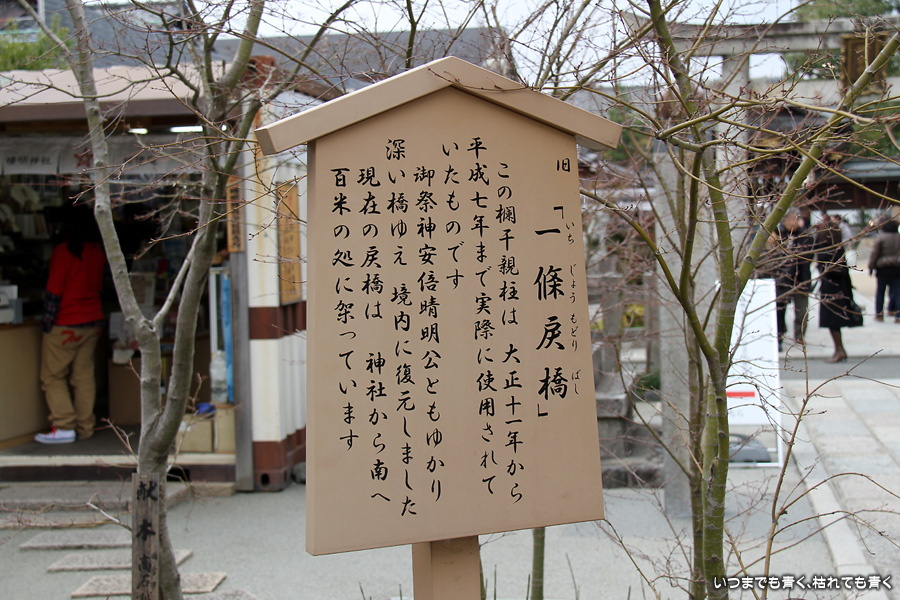 旧「一條戻橋」
いち じょう もどり ばし
この欄干親柱は 大正十一年から
平成七年まで実際に使用されて
いたものです
御祭神安倍晴明公ともゆかり
深い橋ゆえ 境内に復元しました
現在の戻橋は 神社から南へ
百米の処に架っています
献木
いつまでも青く、枯れても青く